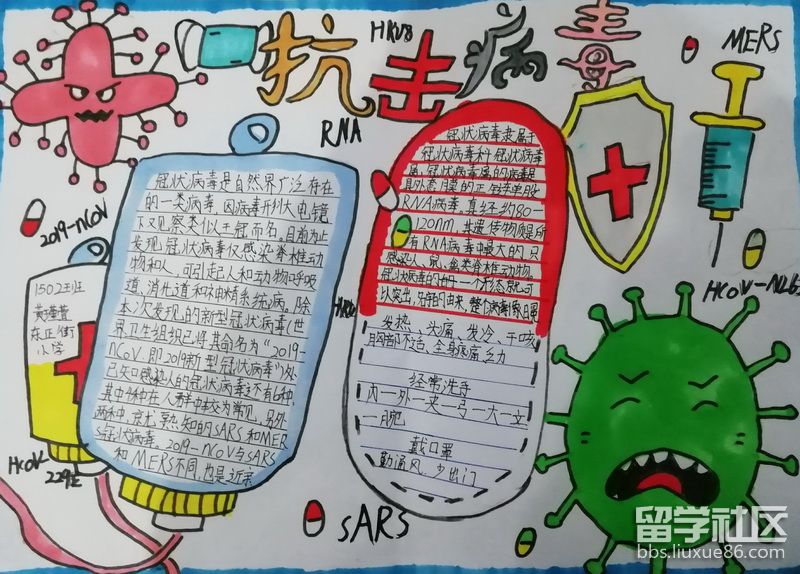 抗击病毒
HKU8
MERS
RNA
2019-nCoV
1502王班
东正街
小学
HCoV
229E
冠状病毒是自然界广泛存在
的一类病毒，因病毒形状大电镜
下又见察类似王冠而名，目前为止
发现，冠状病毒仅感染脊椎动
物和人，可引起人和动物呼吸
道、消先道和神精系统病。除
本次发现的新型冠状病毒(世
界卫生组织已将其命名为“2019-
nCoV，即2019新型冠状病毒”)外
已知感染人的冠状病毒还有6种
其中4种在人群中较为常见，另外
两种，
熟知的SARS和MER
冠状病毒。2019-nCoV与SARS
和MERS不同也是近亲
冠状病毒隶属于
冠状病毒科冠状病毒
属，冠状病毒属的病毒是
具外套膜的正
单股
RNA病毒，直径约80-
120nm，其遗传物质是所
有RNA病毒中最大的，只
感染人、鼠、禽类脊椎动物。
冠状病毒的
一个形态
可
以突出，
的由来，整个病毒
日冕
发热、头痛、发冷、干咳
胸部不适、全身疼痛乏力
经常洗手
内一外一夹一弓一大一立
一腕
戴口罩
勤通风，少出门
HCoV-NL63
SARS
留学社区
bbs.liuxue86.com